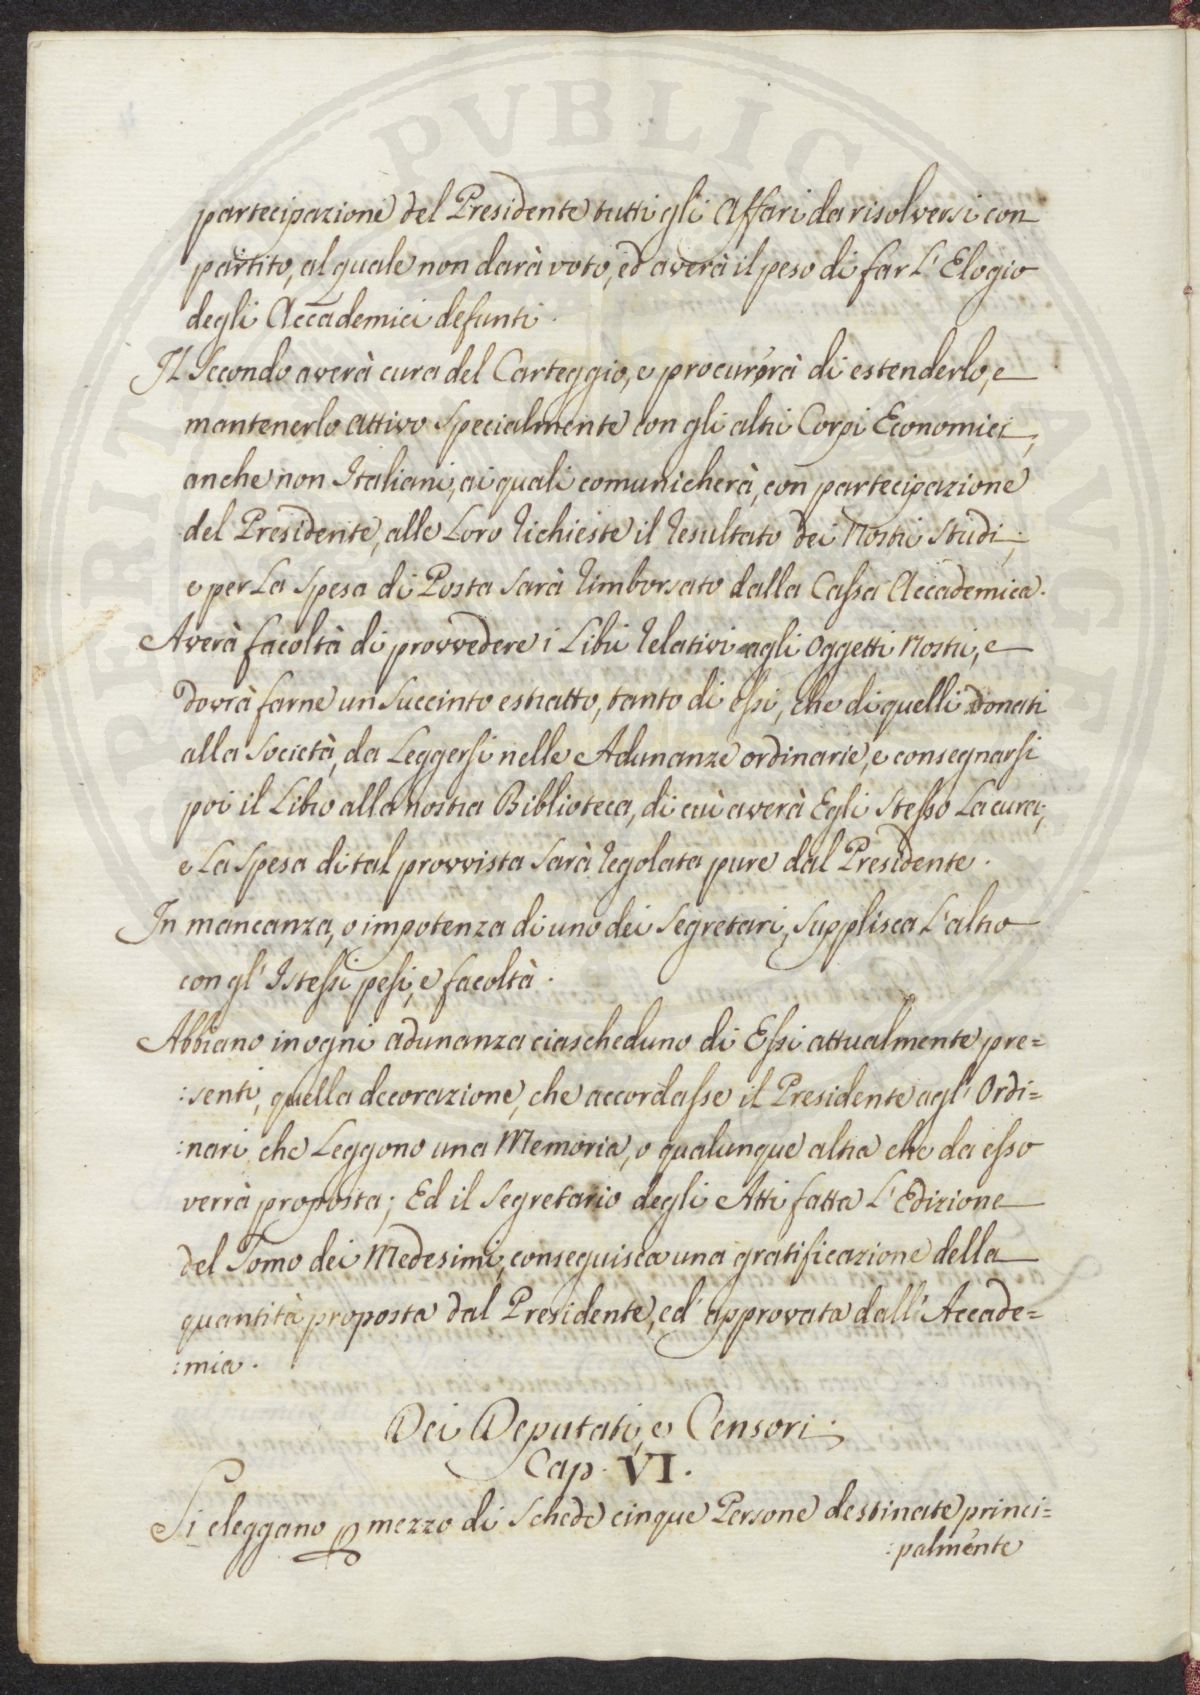 partecipazione del Presidente tutti gli Affari da risolversi con
partito, al quale non darà voto, ed averà il peso di far L'Elogio
degli Accademici defunti.
Il Secondo averà cura del Carteggio, e procurerà di estenderlo, e
mantenerlo attivo specialmente con gli altri Corpi Economici,
anche non Italiani, ai quali comunicherà, con partecipazione
del Presidente, alle Loro richieste il resultato dei Nostri Studi;
e per La Spesa di Posta sarà rimborsato dalla Cassa Accademica.
Averà facoltà di provvedere i Libri relativi agli Oggetti Nostri, e
dovrà farne un succinto estratto, tanto di essi, che di quelli donati
alla Società, da Leggersi nelle Adunanze ordinarie, e consegnarsi
poi il Libro alla nostra Biblioteca, di cui averà Egli Stesso La cura,
e La Spesa di tal provvista sarà regolata pure dal Presidente.
In mancanza, o impotenza di uno dei Segretari, supplisca L'altro
con gl'Istessi pesi, e facoltà.
Abbiano in ogni adunanza ciascheduno di Essi attualmente pre=
:senti, quella decorazione, che accordasse il Presidente agl'Ordi=
:nari che Leggono una Memoria, o qualunque altra che da esso
verrà proposta; Ed il Segretario degli Atti fatta L'Edizione
del Tomo dei Medesimi, conseguisca una gratificazione della
quantità proposta dal Presidente, ed approvata dall'Accade=
:mia.
Dei Deputati, e Censori.
Cap. VI.
Si eleggano p mezzo di Schede cinque Persone destinate princi=
:palmente
PVBLIC